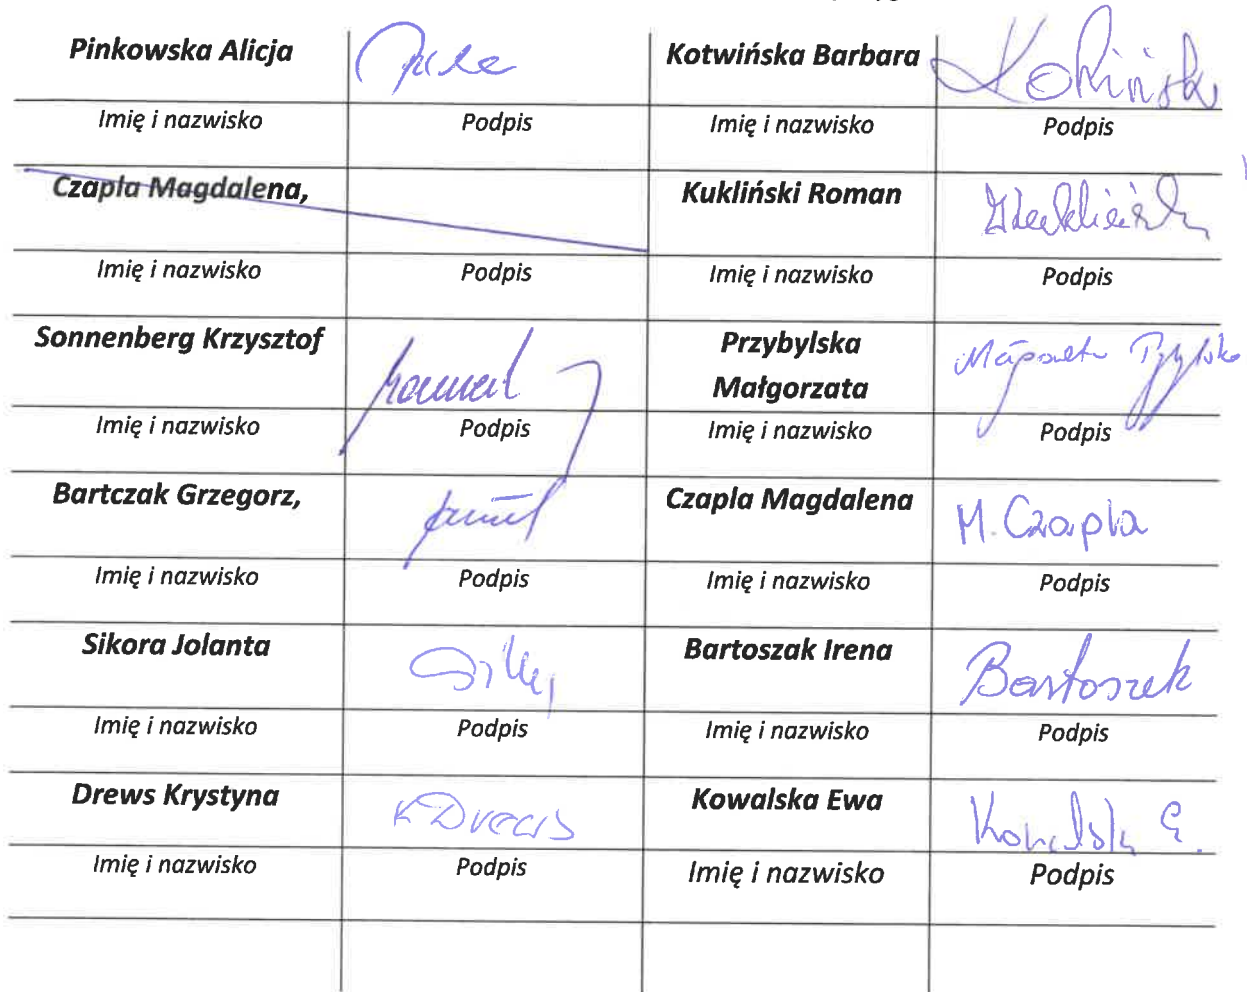 Pinkowska Alicja Kotwińska Barbara
Imię i nazwisko Podpis Imię i nazwisko Podpis
Czapla Magdalena, Kukliński Roman
Imię i nazwisko Podpis Imię i nazwisko Podpis
Sonnenberg Krzysztof Przybylska
Małgorzata
Imię i nazwisko Podpis Imię i nazwisko Podpis
Bartczak Grzegorz, Czapla Magdalena M. Czapla
Imię i nazwisko Podpis Imię i nazwisko Podpis
Sikora Jolanta Bartoszak Irena Bartoszak
Imię i nazwisko Podpis Imię i nazwisko Podpis
Drews Krystyna K Drews Kowalska Ewa Kowalska E.
Imię i nazwisko Podpis Imię i nazwisko Podpis